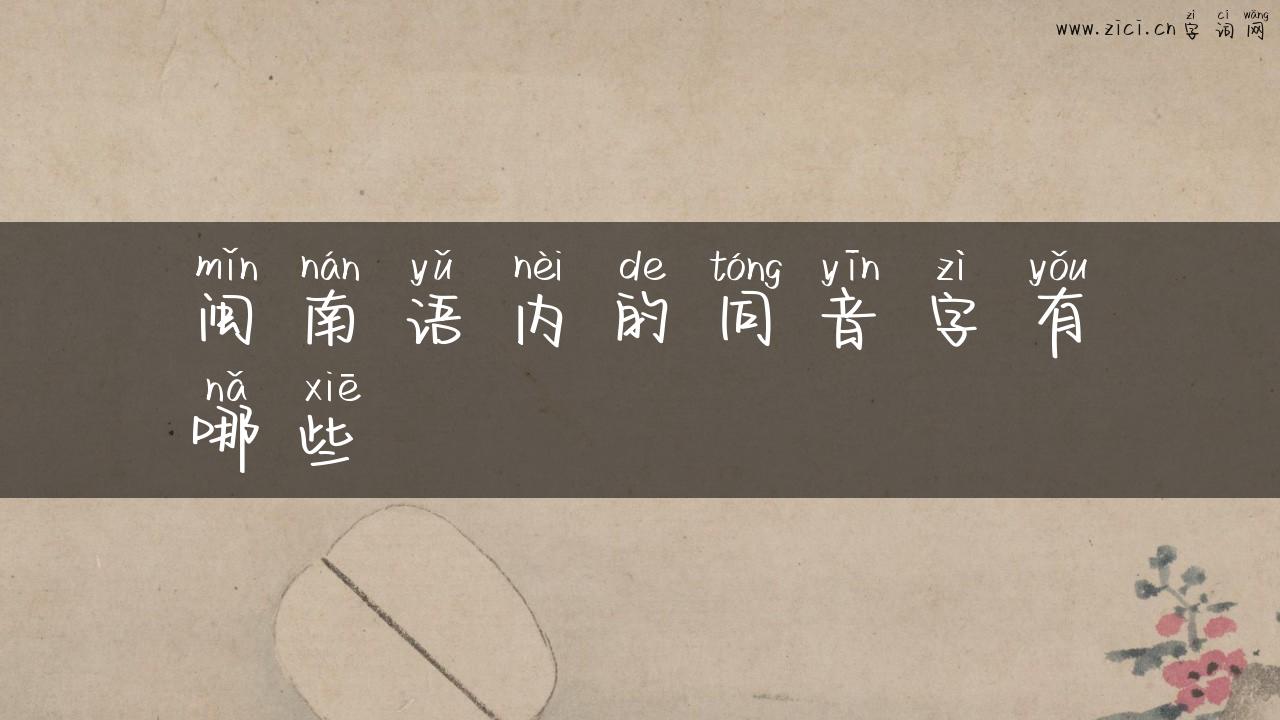 zì cí wǎng
www.zici.cn字词网
mǐn nán yǔ nèi de tóng yīn zì yǒu
闽南语内的同音字有
nǎ xiē
哪些